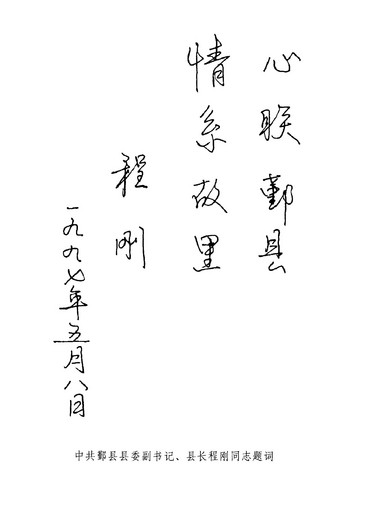 心联鄞县
情系故里
程刚
一九九七年五月八日
中共鄞县县委副书记、县长程刚同志题词